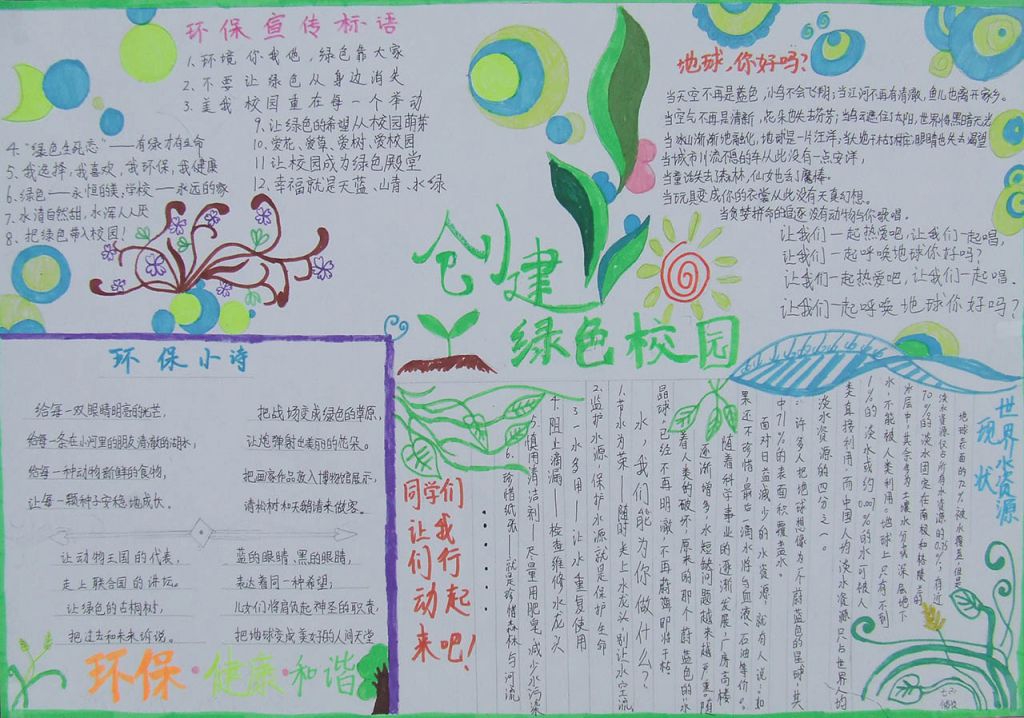 环保宣传标语
1.环境你我他,绿色靠大家
2.不要让绿色从身边消失
3.美我校园重在每一个举动
4."绿色生死恋"——有绿才有生命
5.我选择,我喜欢,我环保,我健康
6.绿色——永恒的美,学校——永远的家
7.水清自然甜,水浑人人厌
8.把绿色带入校园!
9.让绿色的希望从校园萌芽
10.爱花、爱草、爱树、爱校园
11.让校园成为绿色殿堂
12.幸福就是天蓝、山青、水绿
地球,你好吗?
当天空不再是蓝色,小鸟不会飞翔;当江河不再有清澈,鱼儿也离开家乡。
当空气不再是清新,花朵也失去芬芳;当乌云遮住了太阳,世界将黑暗无光
当冰山渐渐地融化,地球是一片汪洋;
当城市川流不息的车从此没有一点安详,
当童话失去了森林,仙女也丢了魔棒。
当玩具变成你的衣裳从此没有天真幻想。
让我们一起热爱吧,让我们一起唱,
让我们一起呼唤地球你好吗?
让我们一起热爱吧,让我们一起唱.
让我们一起呼唤地球你好吗?
创建
绿色校园
环保小诗
给每一双眼睛明亮的光芒,
给每一条在小河里的朋友清澈的湖水,
给每一种动物新鲜的食物,
让每一颗种子安稳地成长。
把战场变成绿色的草原,
让炮弹射出美丽的花朵。
把画家作品放入博物馆展示,
请松树和禾朝请来做客。
让动物王国的代表,
走上联合国的讲坛。
让绿色的古梧树,
把过去和未来诉说。
蓝的眼睛、黑的眼睛,
表达着同一种希望,
儿女们将肩负起神圣的职责,
把地球变成美好的人间天堂
环保·健康·和谐
同学们
让我
们行
动起
来吧!
世界水资源
现状
地球表面的72%被水覆盖,但是
淡水资源仅占所有水资源的0.75%,有近
70%的淡水固定在南极和格陵兰的
水层中,其余多为土壤水分或深层地下
水,不能被人类利用。地球上只有不到
1%的淡水或约0.007%的水可被人
类直接利用,而中国人均淡水资源只占世界人均
淡水资源的四分之一。
许多人把地球想像为一个蔚蓝色的星球,其
中71%的表面积覆盖水。
面对日益减少的水资源,就有人说:如
果还不珍惜,最后一滴水将与血液、石油等价。
随着科学事业的逐渐发展,厂房高楼
逐渐增多,水短缺问题越来越严重。随
着人类的破坏,原来的那个蔚蓝色的水
晶球,已经不再明澈,不再蔚蓝,即将干枯
水,我们能为你做什么?
1.节水为荣——随时关上水龙头,别让水空流
2.监护水源,保护水源就是保护生命
3.一水多用——让水重复使用
4.阻上滴漏——检查维修水龙头
5.慎用清洁剂——尽量用肥皂,减少水污染
6.珍惜纸张——就是珍惜森林与河流